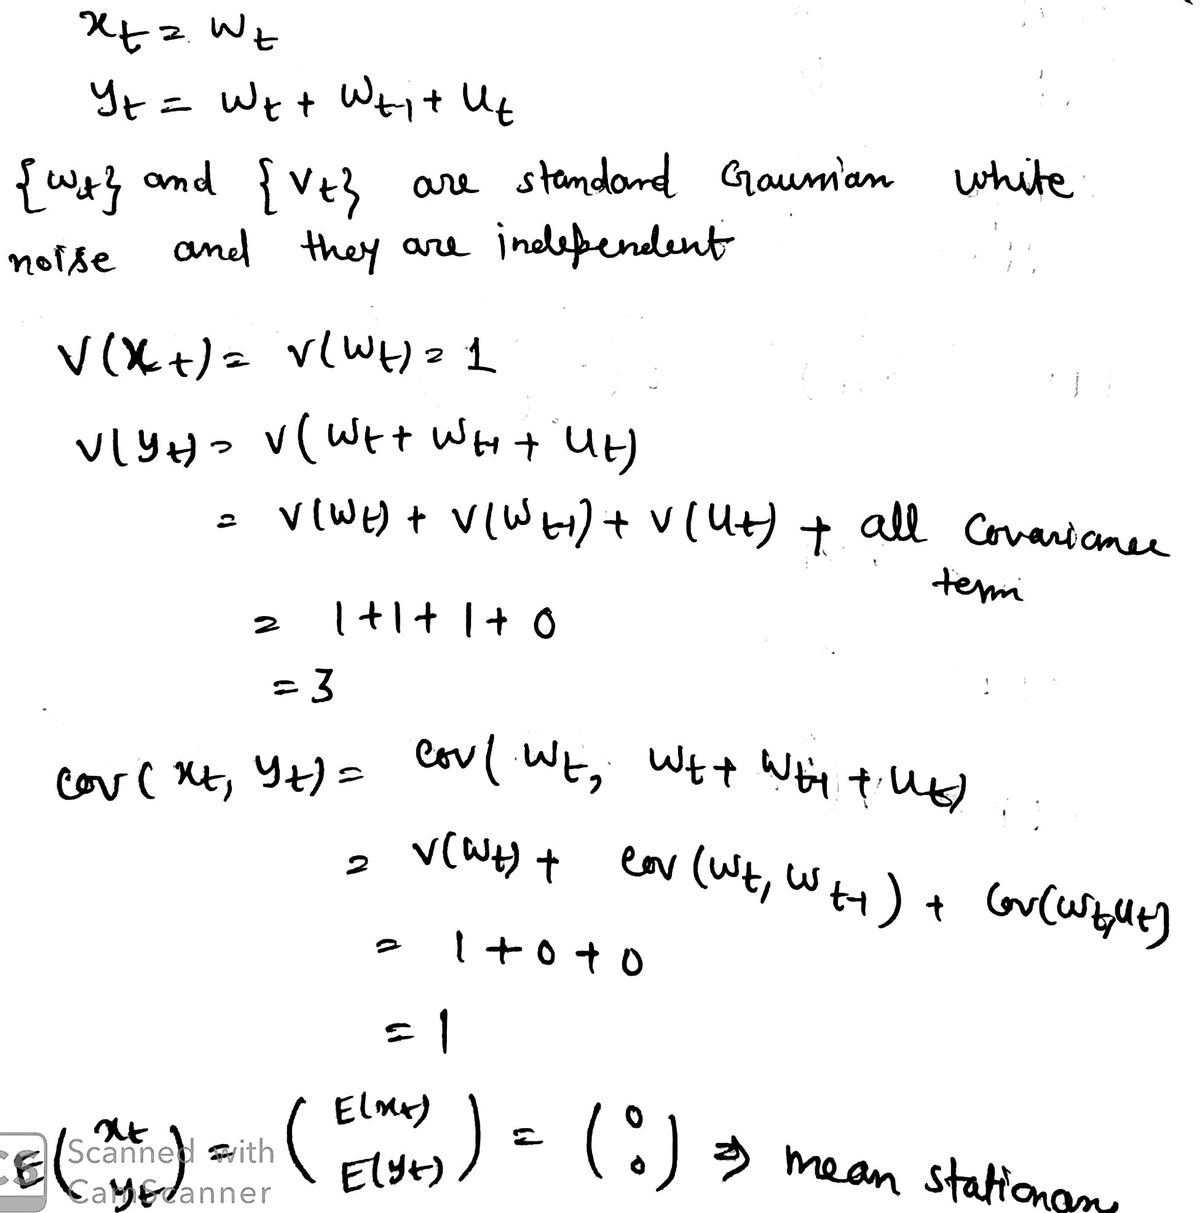 x_t = w_t
y_t = w_t + w_{t-1} + u_t
{w_t} and {v_t} are standard Gaussian white
noise and they are independent
V(x_t) = V(w_t) = 1
V(y_t) = V(w_t + w_{t-1} + u_t)
= V(w_t) + V(w_{t-1}) + V(u_t) + all covariance
term
= 1+1+1+0
= 3
cov(x_t, y_t) = cov(w_t, w_t + w_{t-1} + u_t)
= V(w_t) + cov(w_t, w_{t-1}) + cov(w_t, u_t)
= 1+0+0
= 1
E(x_t y_t) = (E(x_t) E(y_t)) = (0 0) ⇒ mean stationary
CS Scanned with
CamScanner